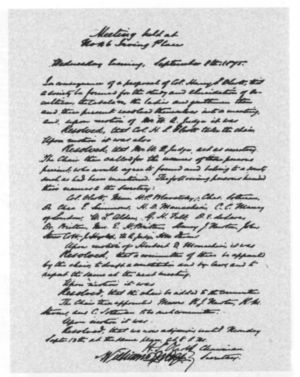 Meeting held at
No 46 Irving Place
Wednesday Evening, September 8th, 1875.
In consequence of a proposal of Col. Henry S. Olcott, that
a Society be formed for the study and elucidation of Oc-
cultism, the ladies and gentlemen then
and there present resolved themselves into a meeting,
and, upon motion of Mr W. Q. Judge it was
Resolved, that Col H. S. Olcott take the chair
Upon motion it was also
Resolved, that Mr W. Q. Judge, act as secretary
The Chair then called for the names of those persons
present, who would agree to found and belong to a society
such as had been mentioned. The following persons handed
their names to the Secretary:
Col. Olcott, Mme H. P. Blavatsky, Chas. Sotheran,
Dr. Chas. E. Simmons, H. D. Monachesi, C. C. Massey
of London, W. L. Alden, G. H. Felt, D. E. de Lara,
Dr. Britten, Mrs. E. H. Britten, Henry J. Newton, John
Storer Cobb, J. Hyslop, W. Q. Judge, H. M. Stevens
Upon motion of Herbert D. Monachesi it was
Resolved, that a committee of three be appointed
by the chair, to draft a constitution and by laws and to
report the same at the next meeting.
Upon motion it was
Resolved, that the chair be added to the Committee
The Chair then appointed Messrs H. J. Newton, H. M.
Stevens, and C. Sotheran to be such committee.
Upon motion it was
Resolved, that we now adjourn until Monday
Sept. 13th, at the same place, at 8 P.M.
H. S. Olcott Chairman
William Q. Judge Secretary.